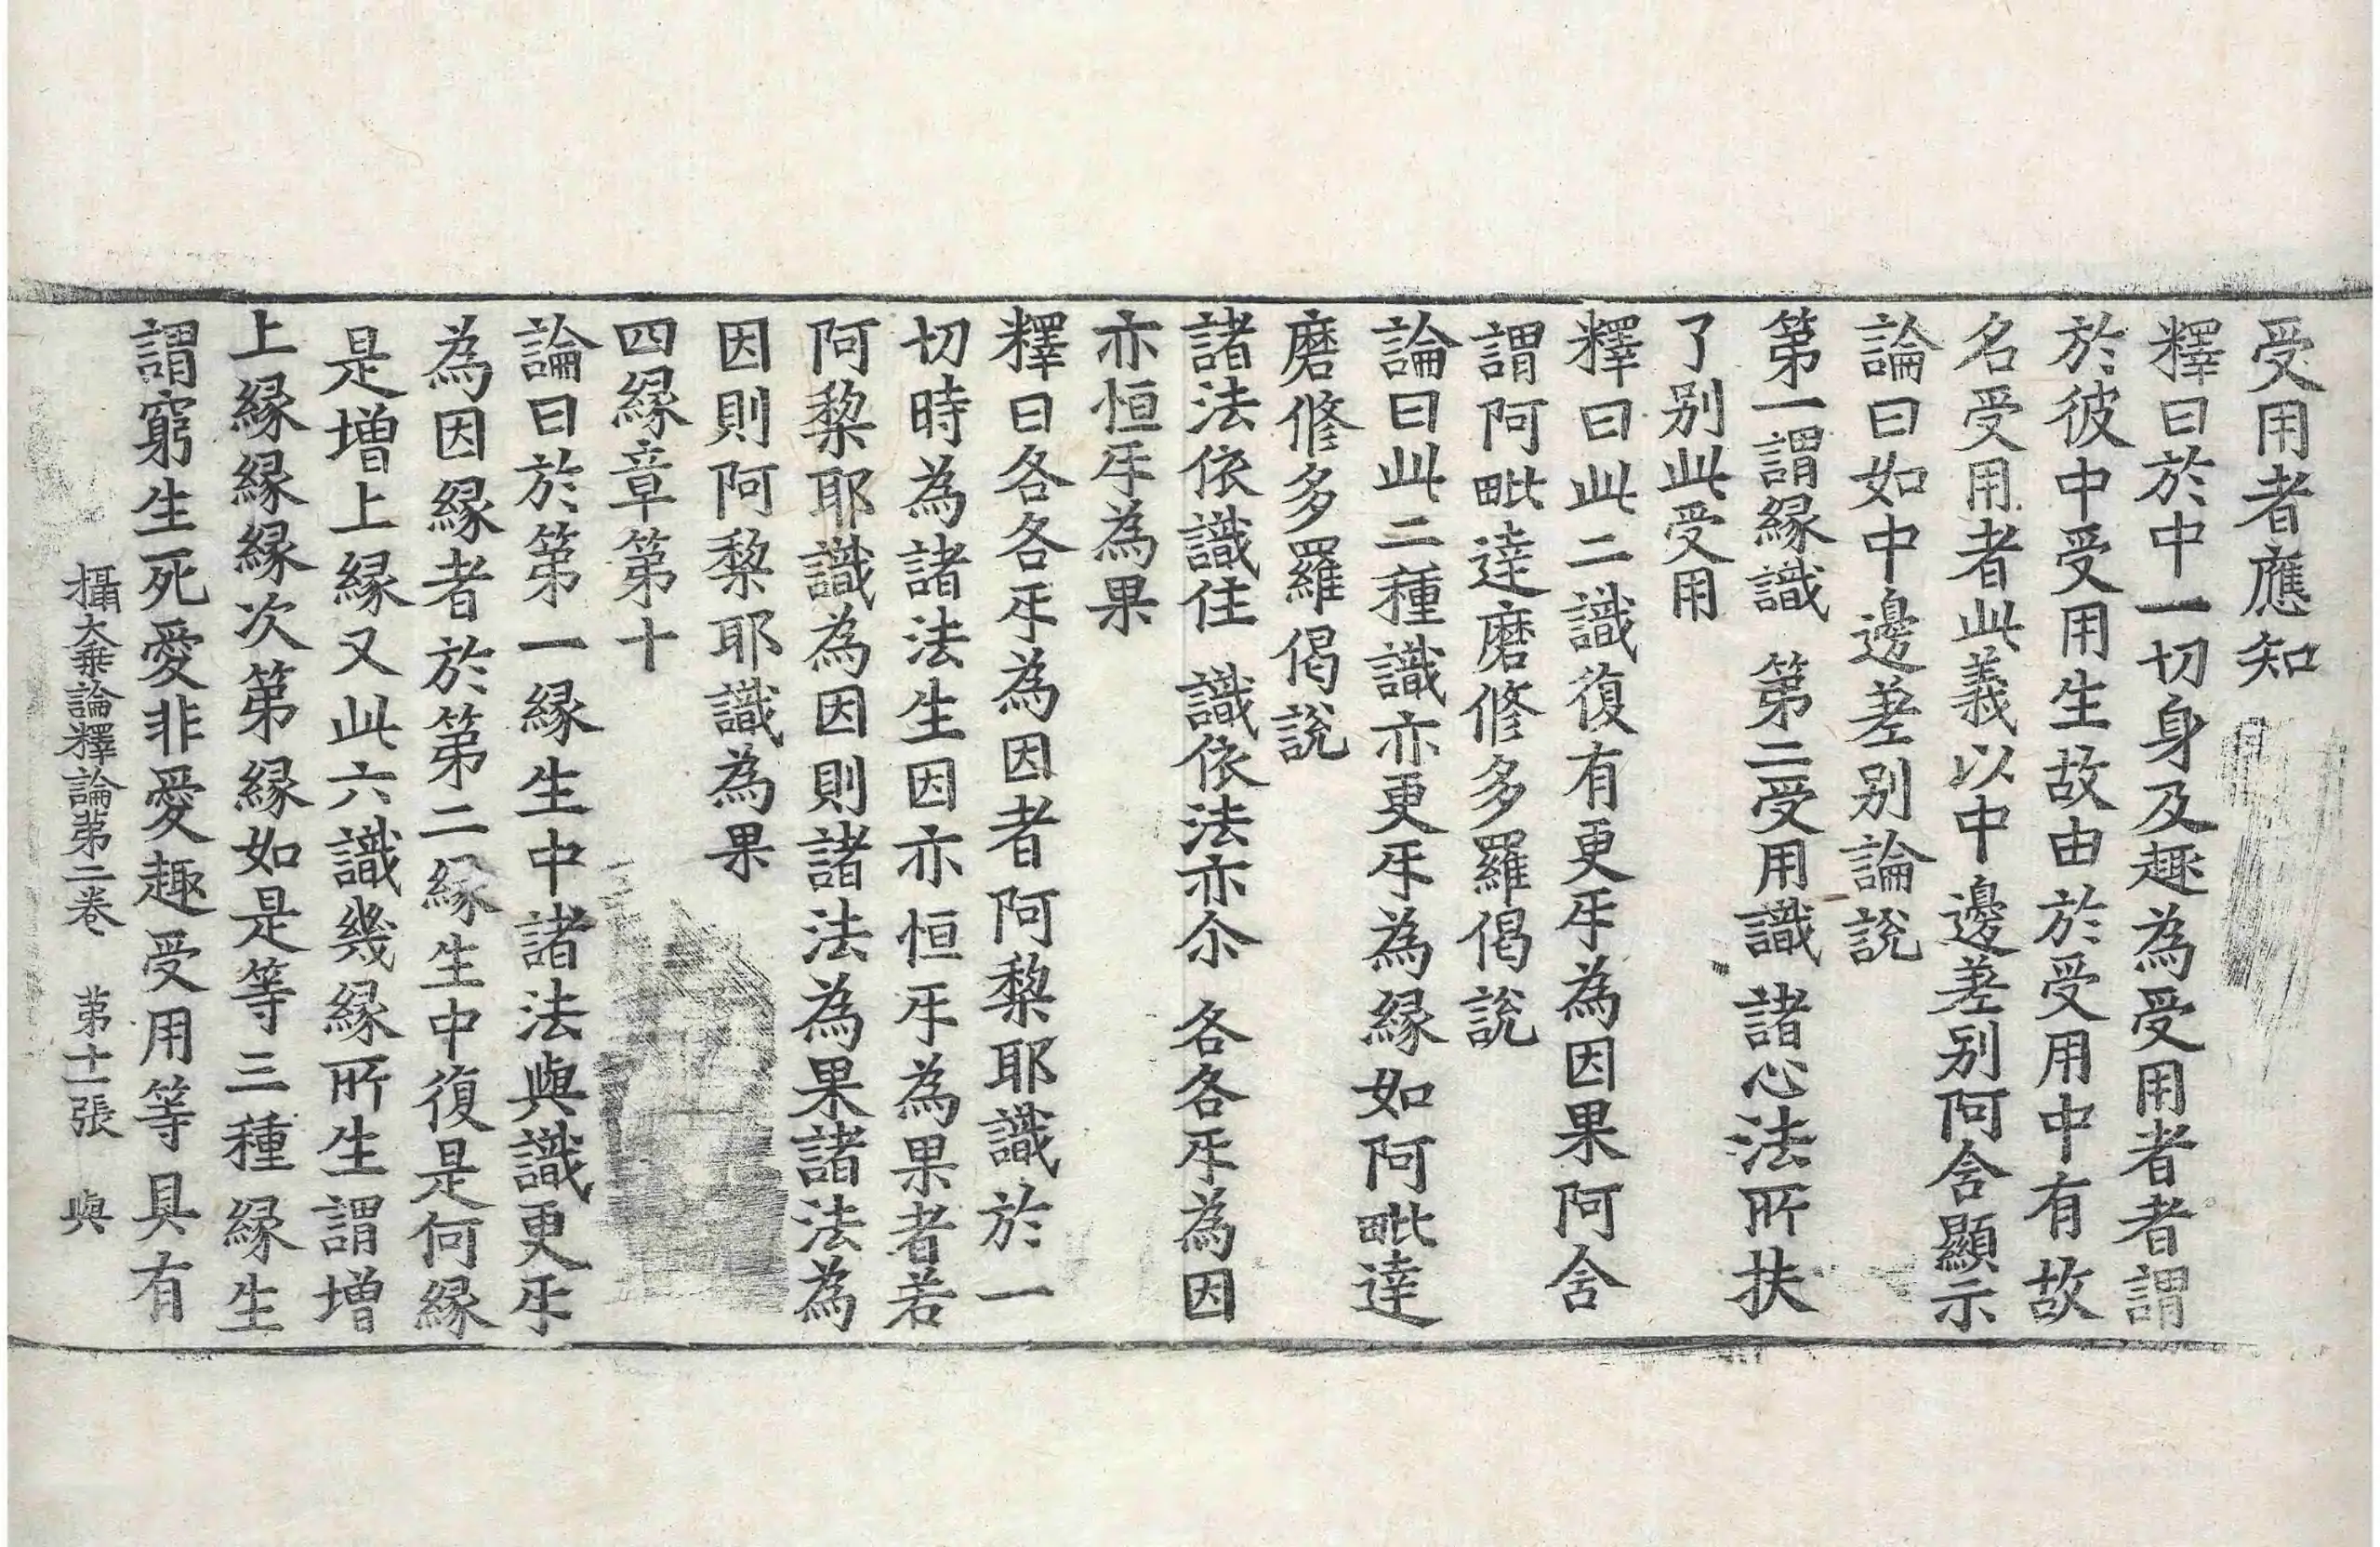 受用者應知
釋曰於中一切身及趣為受用者者謂
於彼中受用生故由於受用中有故
名受用者此義以中邊差别阿含顯示
論曰如中邊差别論說
第一謂縁識 第二受用識 諸心法所扶
了别此受用
釋曰此二識復有更㸦為因果阿含
謂阿毗達磨修多羅偈說
論曰此二種識亦更㸦為縁如阿毗達
磨修多羅偈說
諸法依識住 識依法亦尒 各各㸦為因
亦恒㸦為果
釋曰各各㸦為因者阿黎耶識於一
切時為諸法生因亦恒㸦為果者若
阿黎耶識為因則諸法為果諸法為
因則阿黎耶識為果
四縁章第十
論曰於第一縁生中諸法與識更㸦
為因縁者於第二縁生中復是何縁
是增上縁又此六識幾縁所生謂增
上縁縁縁次第縁如是等三種縁生
謂窮生死愛非愛趣受用等具有
攝大乗論釋論第二卷 第十一張 與